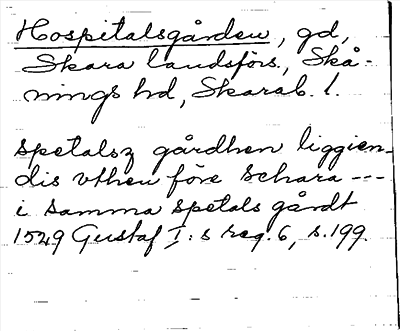 Hospitalsgården, gd,
Skara landsförs., Skå-
nings hd, Skarab. l.
spetalsz gårdhen liggien-
dis vthen före Schara ---
i samma spetals gårdt
1549 Gustaf I:s reg. 6, s. 199.